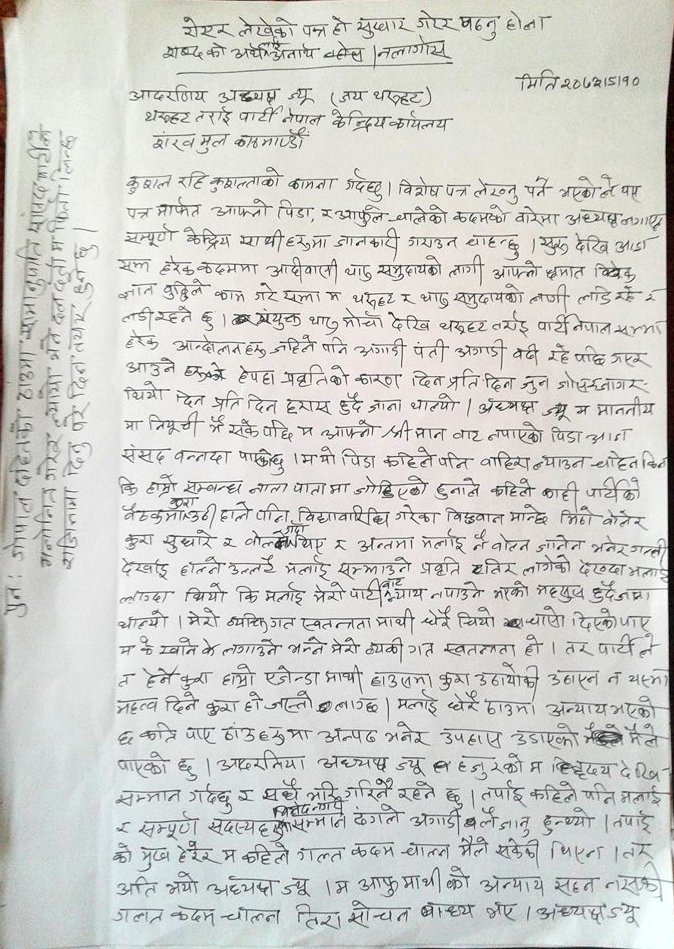 रोएर लेखेको पत्र हो सुधार गरेर पढनु होला
शब्द को अर्थको अनार्थ नहोस । नलागोस
मिति २०७२।५।१०
आदरणिय अध्यक्ष ज्यू (जय थरूहट)
थरूहट तराई पार्टी नेपाल केन्द्रिय कार्यलय
शंख मुल काठमाण्डौं
कुशल रहि कुशलताको कामना गर्दछु । विशेष पत्र लेख्नु पर्ने भएको ले यए
पत्र मार्फत आफ्नो पिडा, र आफुले चालेको कदमको वारेमा अध्यक्ष लगाएत
सम्पूर्ण केन्द्रिय साथी हरूमा जानकारी गराउन चाहन्छु । सुरू देखि आज
सम्म हरेक कदममा आदीवासी थारू समुदायको लागी आफ्नो क्षमात विवेक
ज्ञान वुद्धिले काम गरे सम्म म थरूहट र थारू समुदायको लागी लडि रहे र
लडी रहने छु । संयुक्त थारू मोर्चा देखि थरूहट तराई पार्टी नेपाल सम्म
हरेक आन्दोलन हरू जहिले पनि अगाडी पंती अगाडी वढी रहे पछि गएर
आउने हेपहा प्रवृतिको कारण दिन प्रति दिन जुन जोस जागर
थियो दिन प्रति दिन हरास हुदै जाना थाल्यो । अध्यक्ष ज्यू म माननीय
मा नियुक्ती भै सके पछि म आफ्नो श्री मान वाट नपाएको पिडा आज
संसद वन्दा पाएकोछु । म यो पिडा कहिले पनि वाहिर ल्याउन चाहेन किन
कि हाम्रो सम्वन्ध नाता पाता मा जोडिएको हुनाले कहिले काही पार्टीको
वैठकमा कुरा उठी हाले पनि विद्यावारिधि गरेका विद्वान मान्छे मिठो वोलेर
कुरा सुधारे र वोल्न जदा थिए र अन्तमा मलाई नै वोल्न जानेन भनेर गल्ती
देखाई होल्ने उल्टै मलाई सम्झाउने प्रवृति तिर लागेको देख्दा मलाई
लाग्दा थियो कि मलाई मेरो पार्टी वाट न्याय नपाउने भएको महसुस हुदै जाना
थाल्यो । मेरो व्यक्तिगत स्वतन्त्रता माथी धेरै थियो चासो दिएको पाए
म के खाने के लगाउने भन्ने मेरो व्यक्ती गत स्वतन्त्रता हो । तर पार्टी ले
त हेर्ने कुरा हाम्रो एजेन्डा माथी हाउसमा कुरा उठायो की उठाएन न यएमा
महत्व दिने कुरा हो जस्तो लाग्छ । मलाई धेरै ठाउमा अन्याय भएको
छ कति पाए ठाउहरूमा अनपढ भनेर उपहास उडाएको मैले
पाएको छु । आदरनिया अध्यक्ष ज्यू हजुर को म हृदय देखि
सम्मान गर्दछु र सधै भरि गरिनै रहने छु । तपाई कहिले पनि मलाई
र सम्पूर्ण सदस्य हरू सम्मान ढंगले अगाडी लैजानु हुन्थ्यो । तपाई
को मुख हेरेर म कहिले गलत कदम चाल्न मैले सकेकी थिएन । तर
अति भयो अध्यक्ष ज्यू । म आफु माथी को अन्याय सहन नसकी
गलत कदम चाल्न तिर सोचन वाध्य भए । अध्यक्ष ज्यू
पुन: गोपाल दहितको ठाउमा
मनोनित गरेर ल्याँमा भने
राजिनामा दिनु परे दिन तयार हुने छु ।